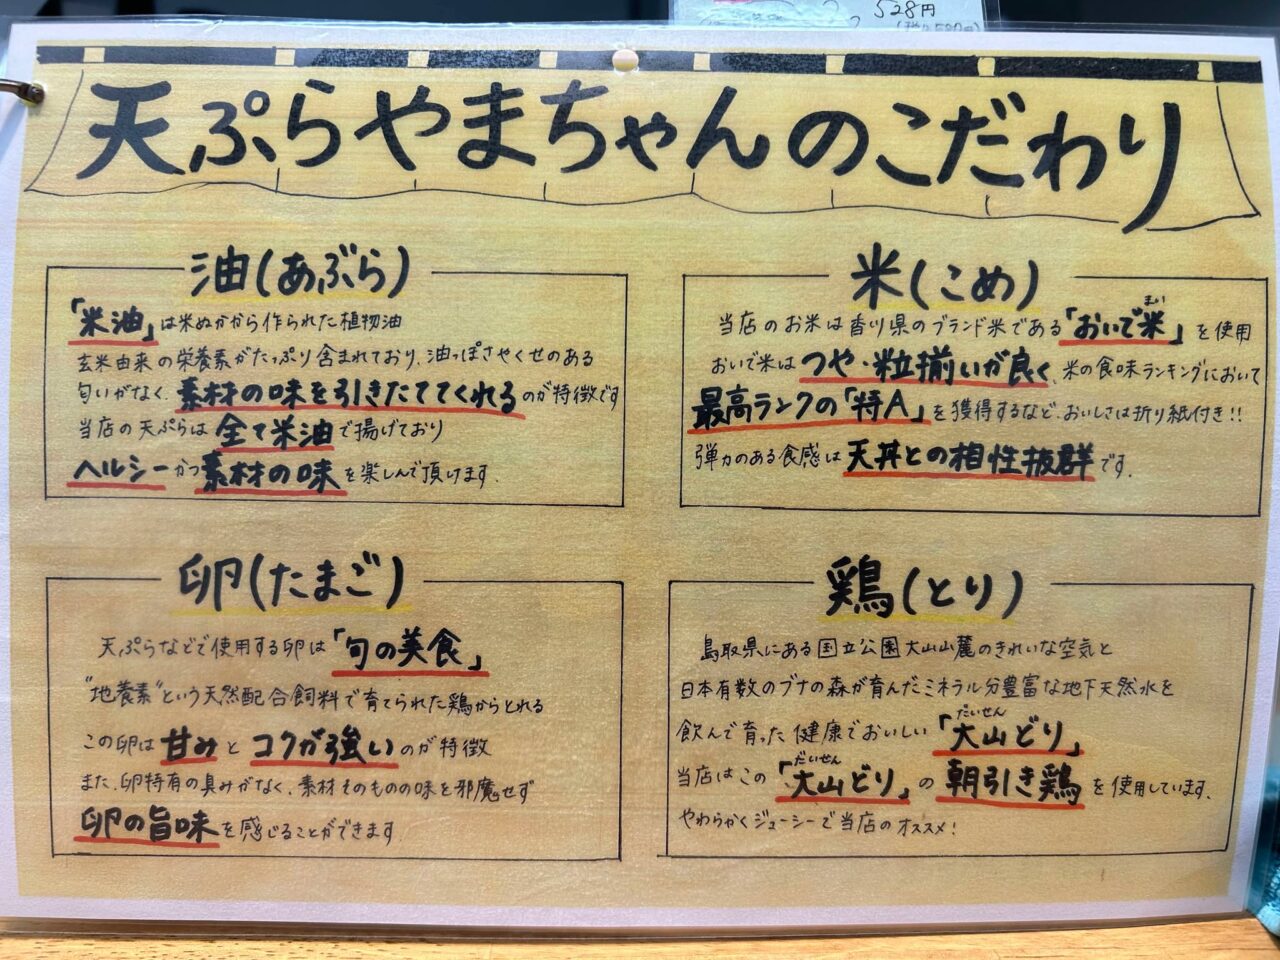 528円
天ぷらやまちゃんのこだわり
油(あぶら)
「米油」は米ぬかから作られた植物油
玄米由来の栄養素がたっぷり含まれており、油っぽさやくせのある
匂いがなく、素材の味を引きたててくれるのが特徴です
当店の天ぷらは全て米油で揚げており
ヘルシーかつ素材の味を楽しんで頂けます。
米(こめ)
まい
当店のお米は香川県のブランド米である「おいで米」を使用
おいで米はつや・粒揃いが良く、米の食味ランキングにおいて
最高ランクの「特A」を獲得するなど、おいしさは折り紙付き!!
弾力のある食感は天丼との相性抜群です。
卵(たまご)
天ぷらなどで使用する卵は「旬の美食」
"地養素"という天然配合飼料で育てられた鶏からとれる
この卵は甘みとコクが強いのが特徴
また、卵特有の臭みがなく、素材そのものの味を邪魔せず
卵の旨味を感じることができます。
鶏(とり)
鳥取県にある国立公園大山山麓のきれいな空気と
日本有数のブナの森が育んだミネラル分豊富な地下天然水を
だいせん
飲んで育った健康でおいしい「大山どり」
だいせん
当店はこの「大山どり」の朝引き鶏を使用しています。
やわらかくジューシーで当店のオススメ!